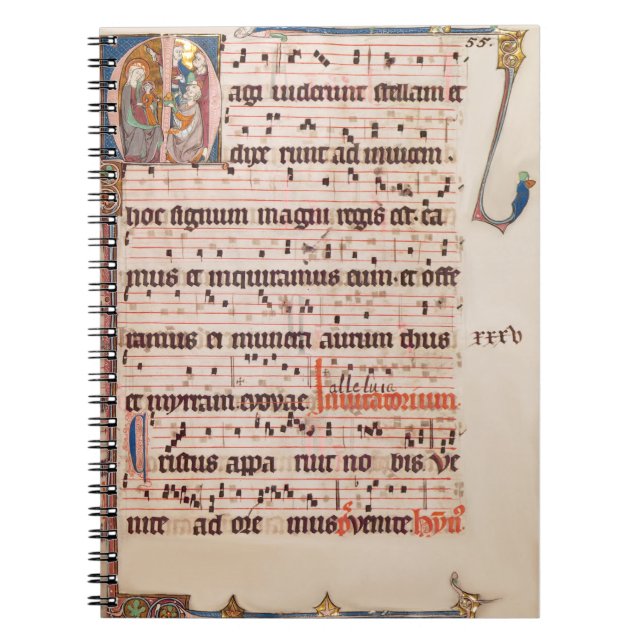 55.
agi viderunt stellam et
dixe runt ad invicem.
hoc signum magni regis est. ea
mus et inquiramus eum. et offe
ramus ei munera aurum thus
xxxv
alleluia
et myrram evovae Invitatorium.
ristus appa ruit no bis. ve
nite ad ore mus ps venite. hym̄